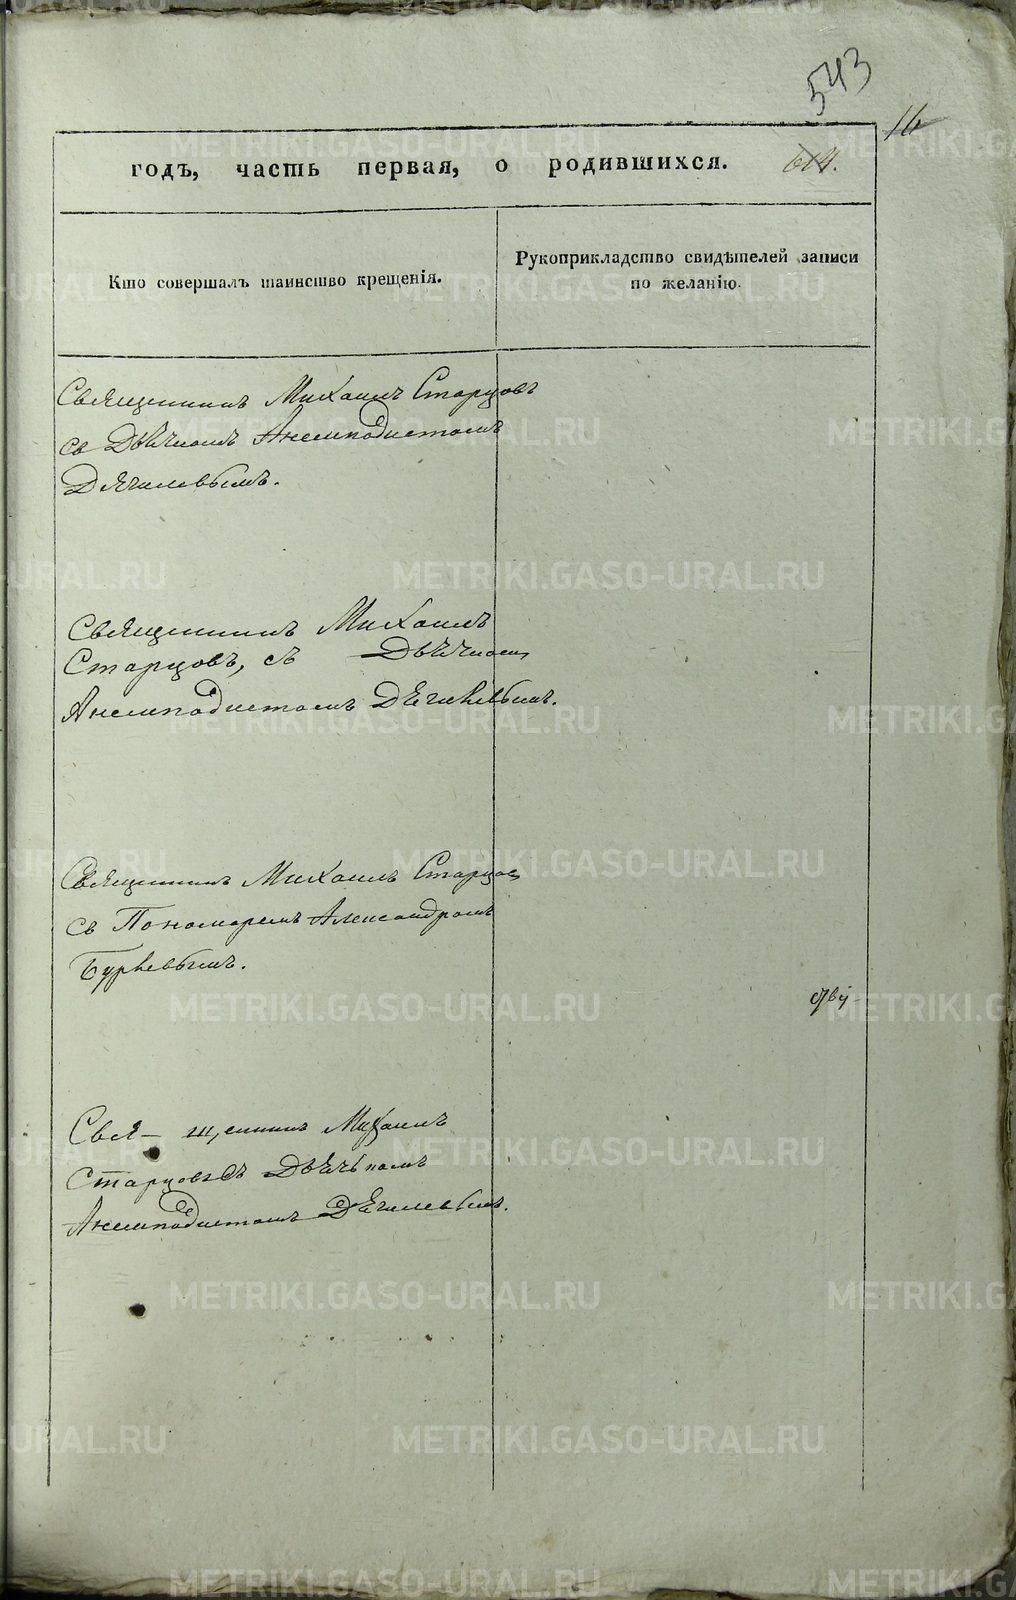 543
16
годъ, часть первая, о родившихся. 614.
Кто совершалъ таинство крещенія.
Рукоприкладство свидѣтелей записи
по желанію.
Священникъ Михаилъ Старцовъ
съ Дьячкомъ Анемподистомъ
Дягилевымъ.
Священникъ Михаилъ
Старцовъ, съ Дьячкомъ
Анемподистомъ Дягилевымъ.
Священникъ Михаилъ Старцов
съ Пономаремъ Александромъ
Свя- щенникъ Михаилъ
Старцовъ съ Дьячькомъ
Анемподистомъ Дягилевымъ.
METRIKI.GASO-URAL.RU